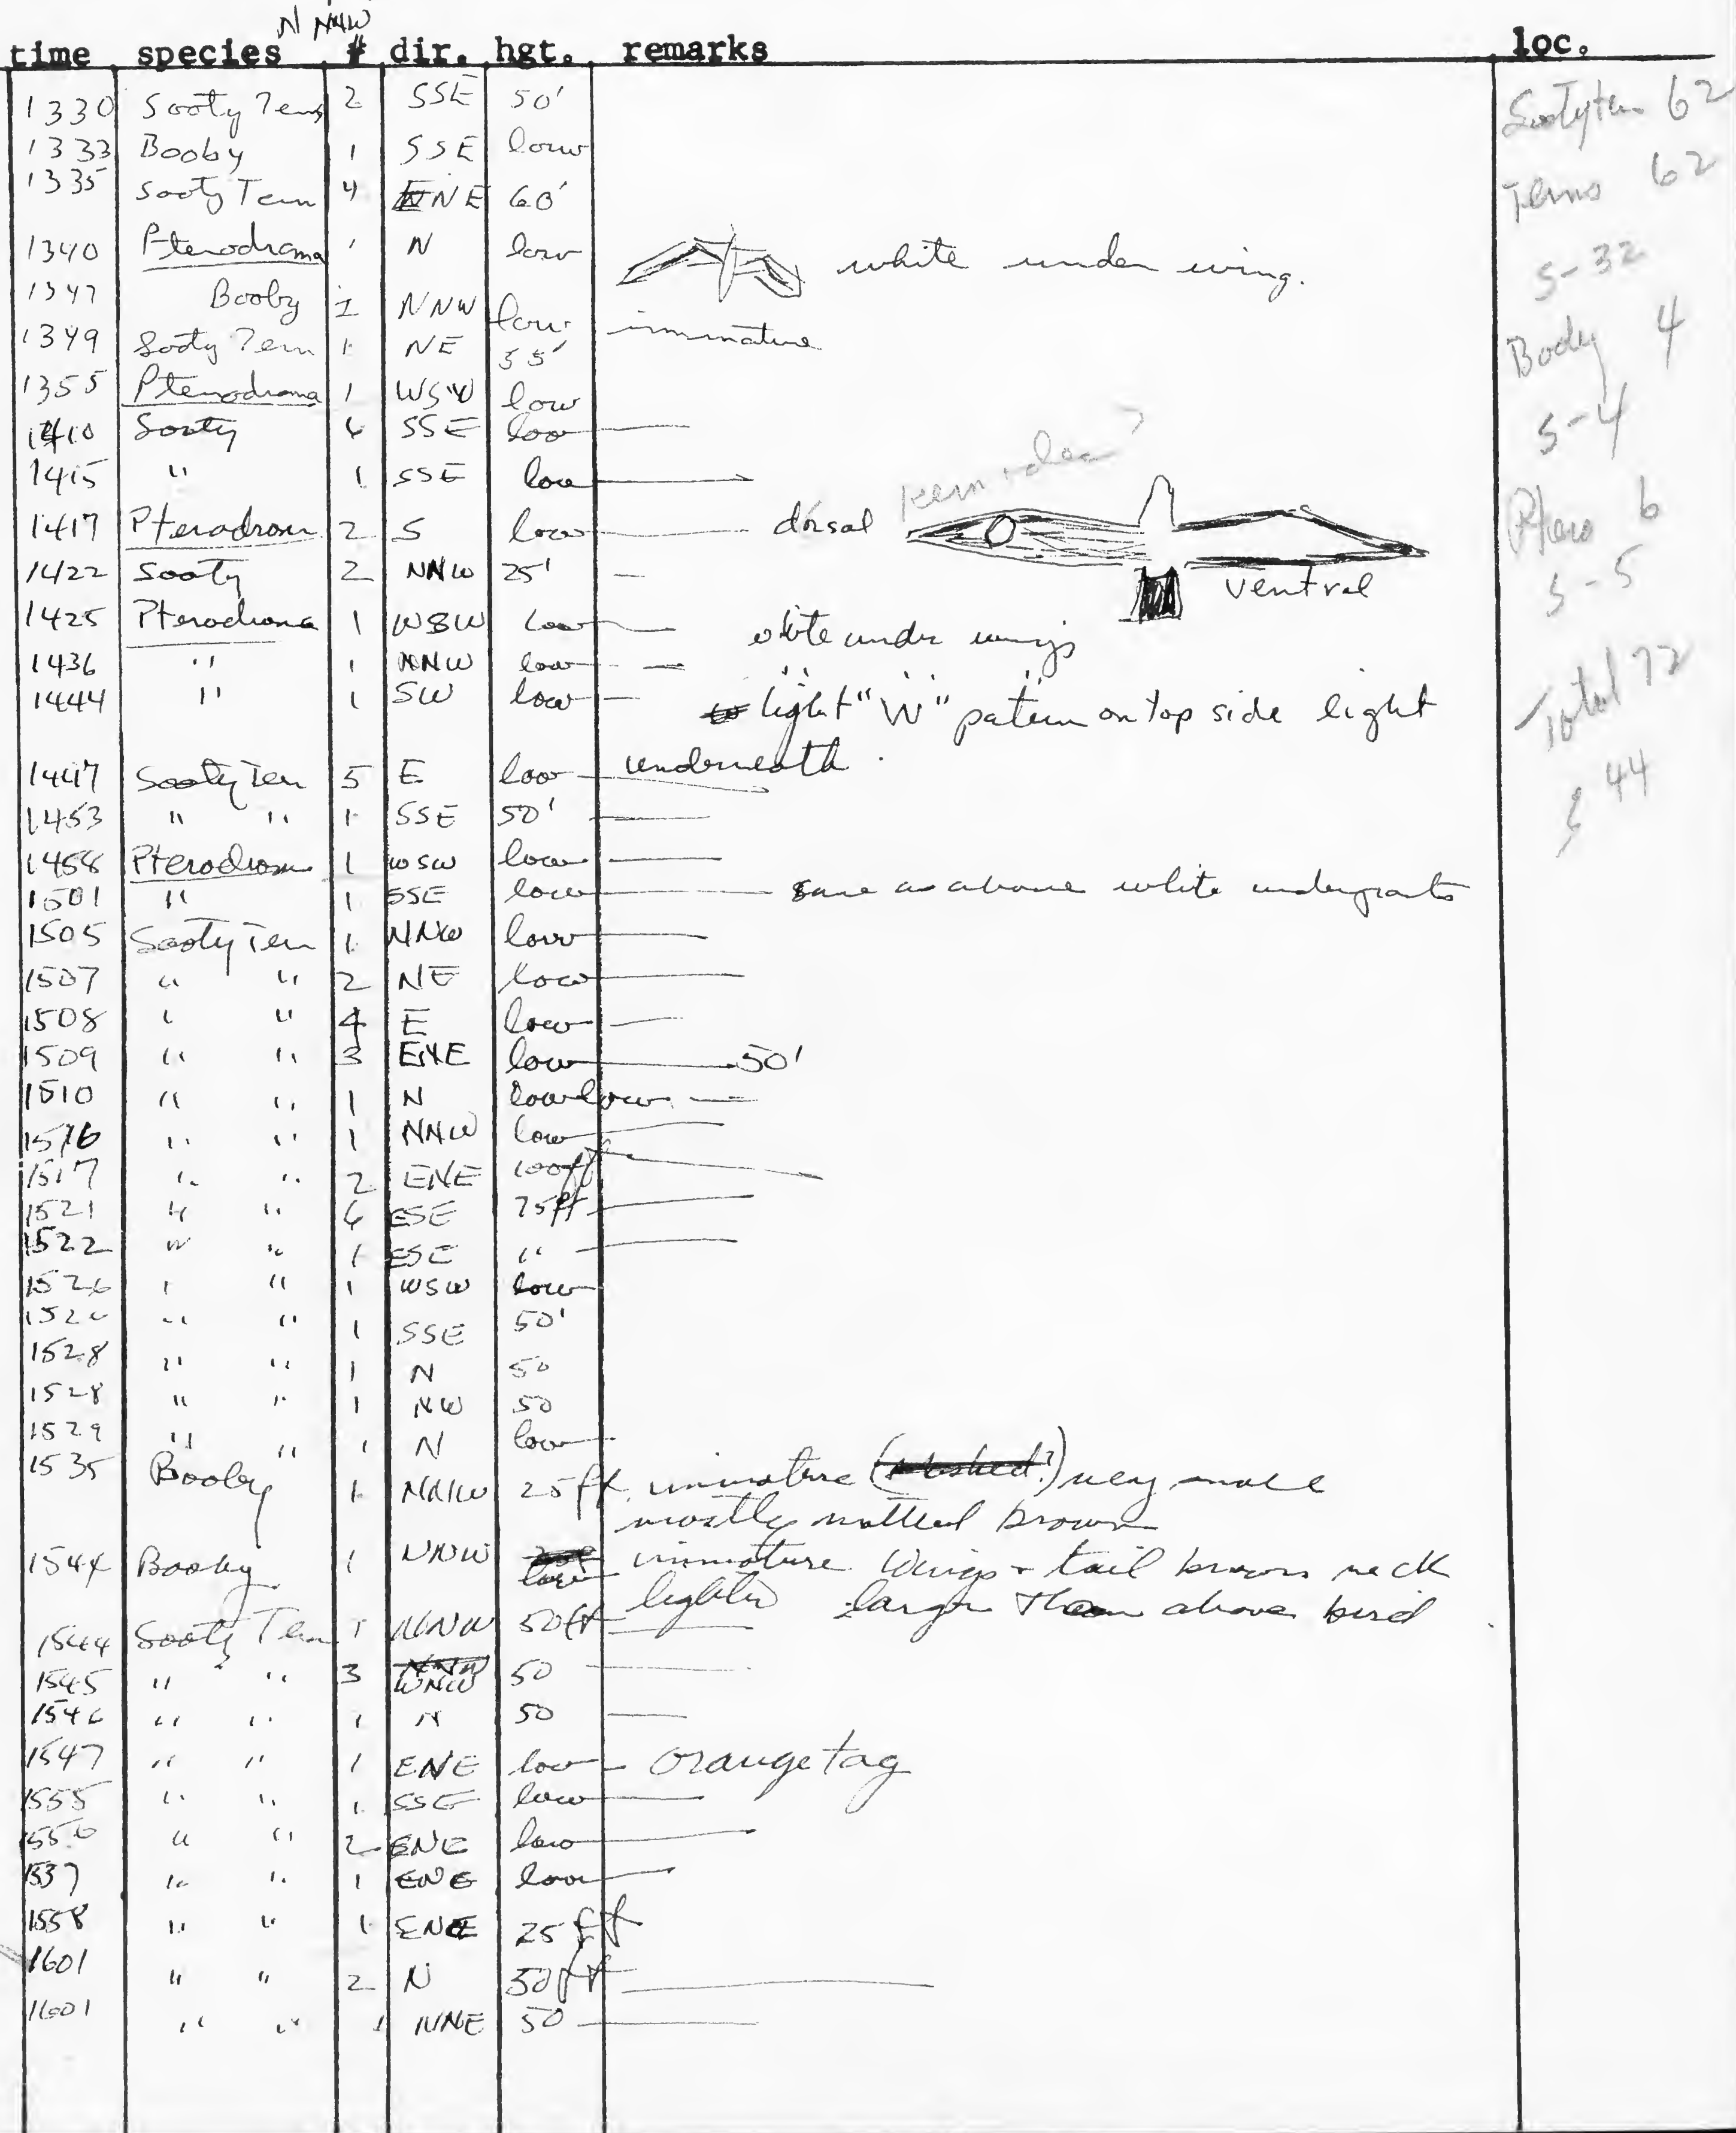 N NNW
time species # dir. hgt. remarks loc.
1330 Sooty Tern 2 SSE 50'
Sooty tern 62
1333 Booby 1 SSE low
1335 Sooty Tern 4 ENE 60'
Terns 62
1340 Pterodroma 1 N low white under wing.
S-32
1347 Booby 1 NNW low immature
1349 Sooty Tern 1 NE 35'
Body 4
1355 Pterodroma 1 WSW low
1410 Sooty 6 SSE low
S-4
1415 " 1 SSE low
1417 Pterodrom 2 S low dorsal
Ptero 6
1422 Sooty 2 NNW 25'
ventral
S-5
1425 Pterodroma 1 WSW low white under wings
1436 " 1 NNW low " " "
1444 " 1 SW low light "W" patern on top side light
underneath.
Total 72
1447 Sooty Tern 5 E low
S 44
1453 " " 1 SSE 50'
1458 Pterodrom 1 WSW low
1501 " 1 SSE low same as above white underparts
1505 Sooty Tern 1 NNW low
1507 " " 2 NE low
1508 " " 4 E low
1509 " " 3 ENE low 50'
1510 " " 1 N low low
1516 " " 1 NNW low
1517 " " 2 ENE 100ft
1521 " " 6 ESE 75ft
1522 " " 1 ESE "
1526 " " 1 WSW low
1526 " " 1 SSE 50'
1528 " " 1 N 50
1528 " " 1 NW 50
1529 " " 1 N low
1535 Booby 1 NNW 25ft. immature very small
mostly mottled brown
1544 Booby 1 NNW low immature wings + tail brown neck
lighter larger than above bird
1544 Sooty Tern 1 NNW 50ft
1545 " " 3 WNW 50
1546 " " 1 N 50
1547 " " 1 ENE low orange tag
1555 " " 1 SSE low
1556 " " 2 ENE low
1557 " " 1 ENE low
1558 " " 1 ENE 25 ft
1601 " " 2 N 50ft
1601 " " 1 NNE 50